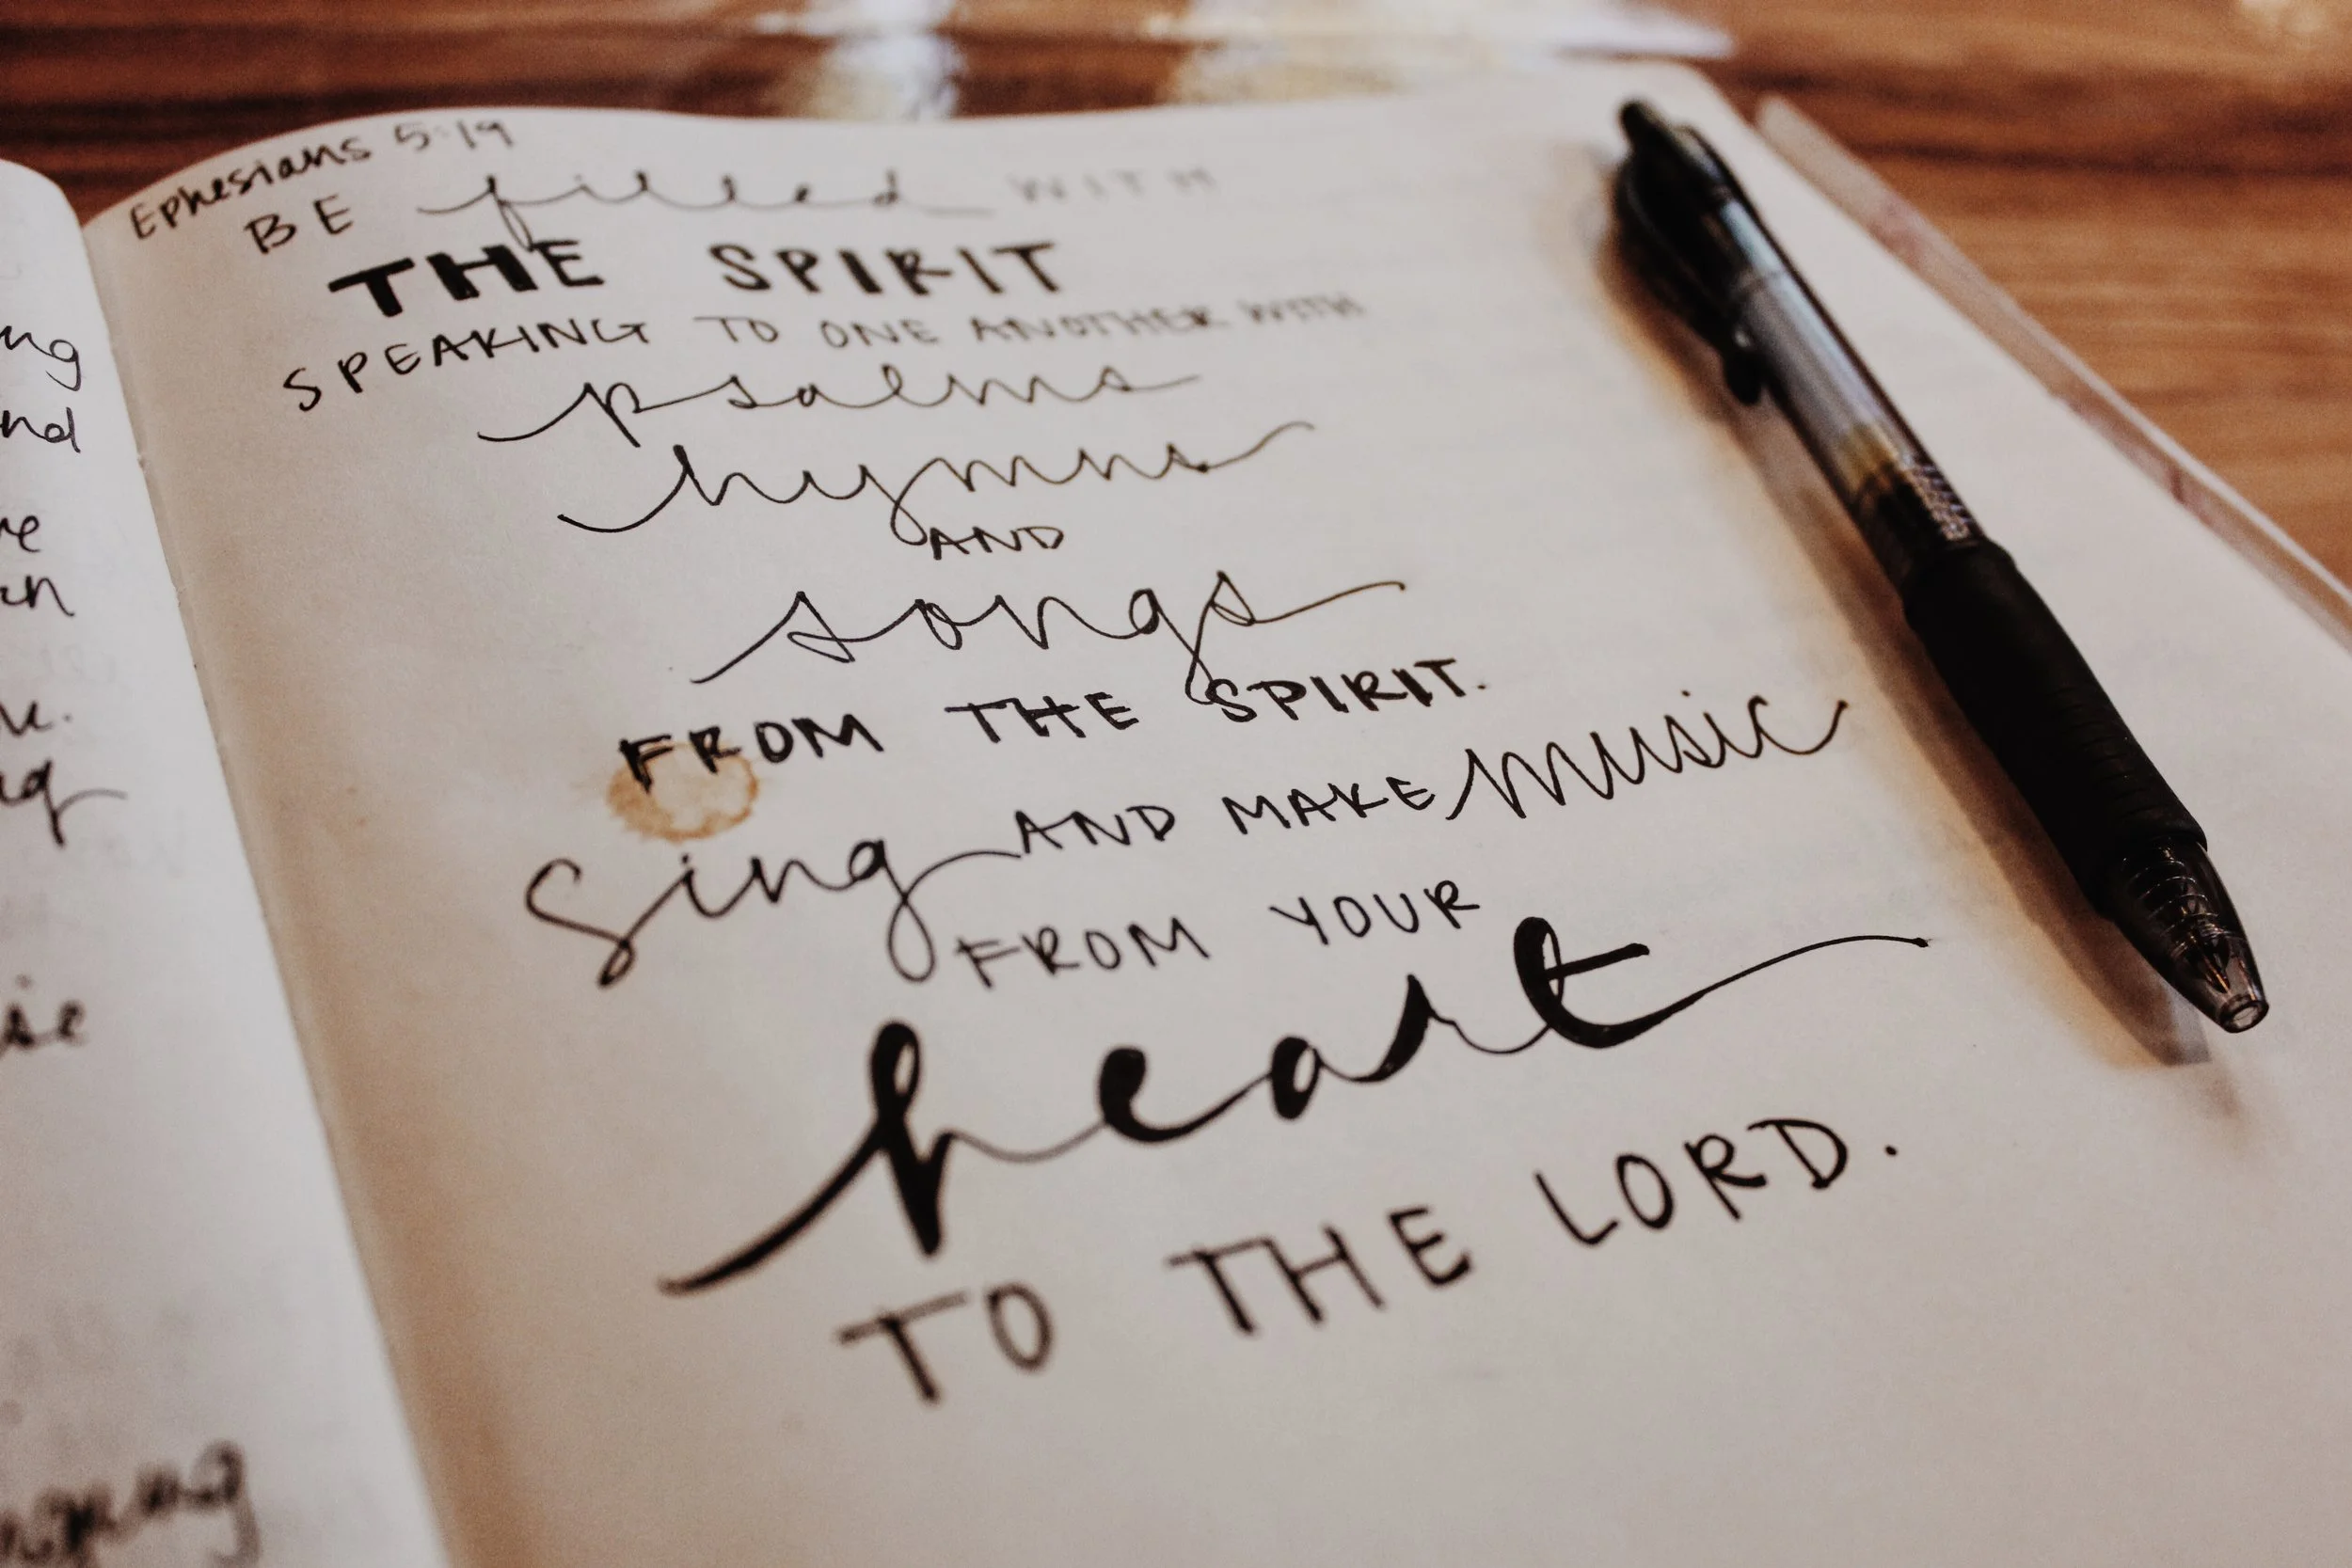 Ephesians 5:19
BE filled WITH
THE SPIRIT
SPEAKING TO ONE ANOTHER WITH
psalms
hymns
AND
songs
FROM THE SPIRIT.
Sing AND MAKE music
FROM YOUR
heart
TO THE LORD.